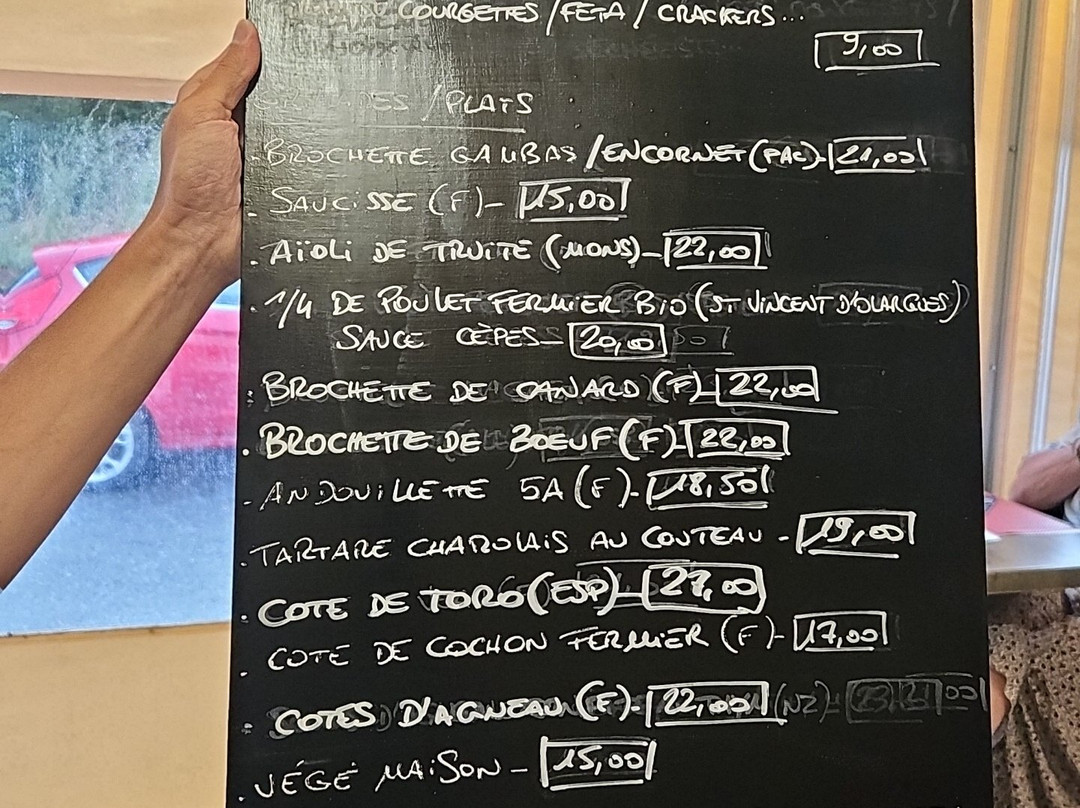 COURGETTES / FETA / CRACKERS...
9,00
/PLATS
- BROCHETTE GAMBAS / ENCORNET (PAC) - 21,00
. SAUCISSE (F) - 15,00
. AÏOLI DE TRUITE (MONS) - 22,00
. 1/4 DE POULET FERMIER BIO (ST VINCENT D'OLARGUES)
SAUCE CÈPES - 20,00
. BROCHETTE DE CANARD (F) - 22,00
. BROCHETTE DE BOEUF (F) - 22,00
- ANDOUILLETTE 5A (F) - 18,50
. TARTARE CHAROLAIS AU COUTEAU - 19,00
. COTE DE TORO (ESP) - 27,00
. COTE DE COCHON FERMIER (F) - 17,00
. COTES D'AGNEAU (F) - 22,00
. VÉGÉ MAISON - 15,00